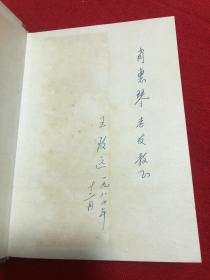 肖惠琴老友教正
王改
一九八六年
十二月